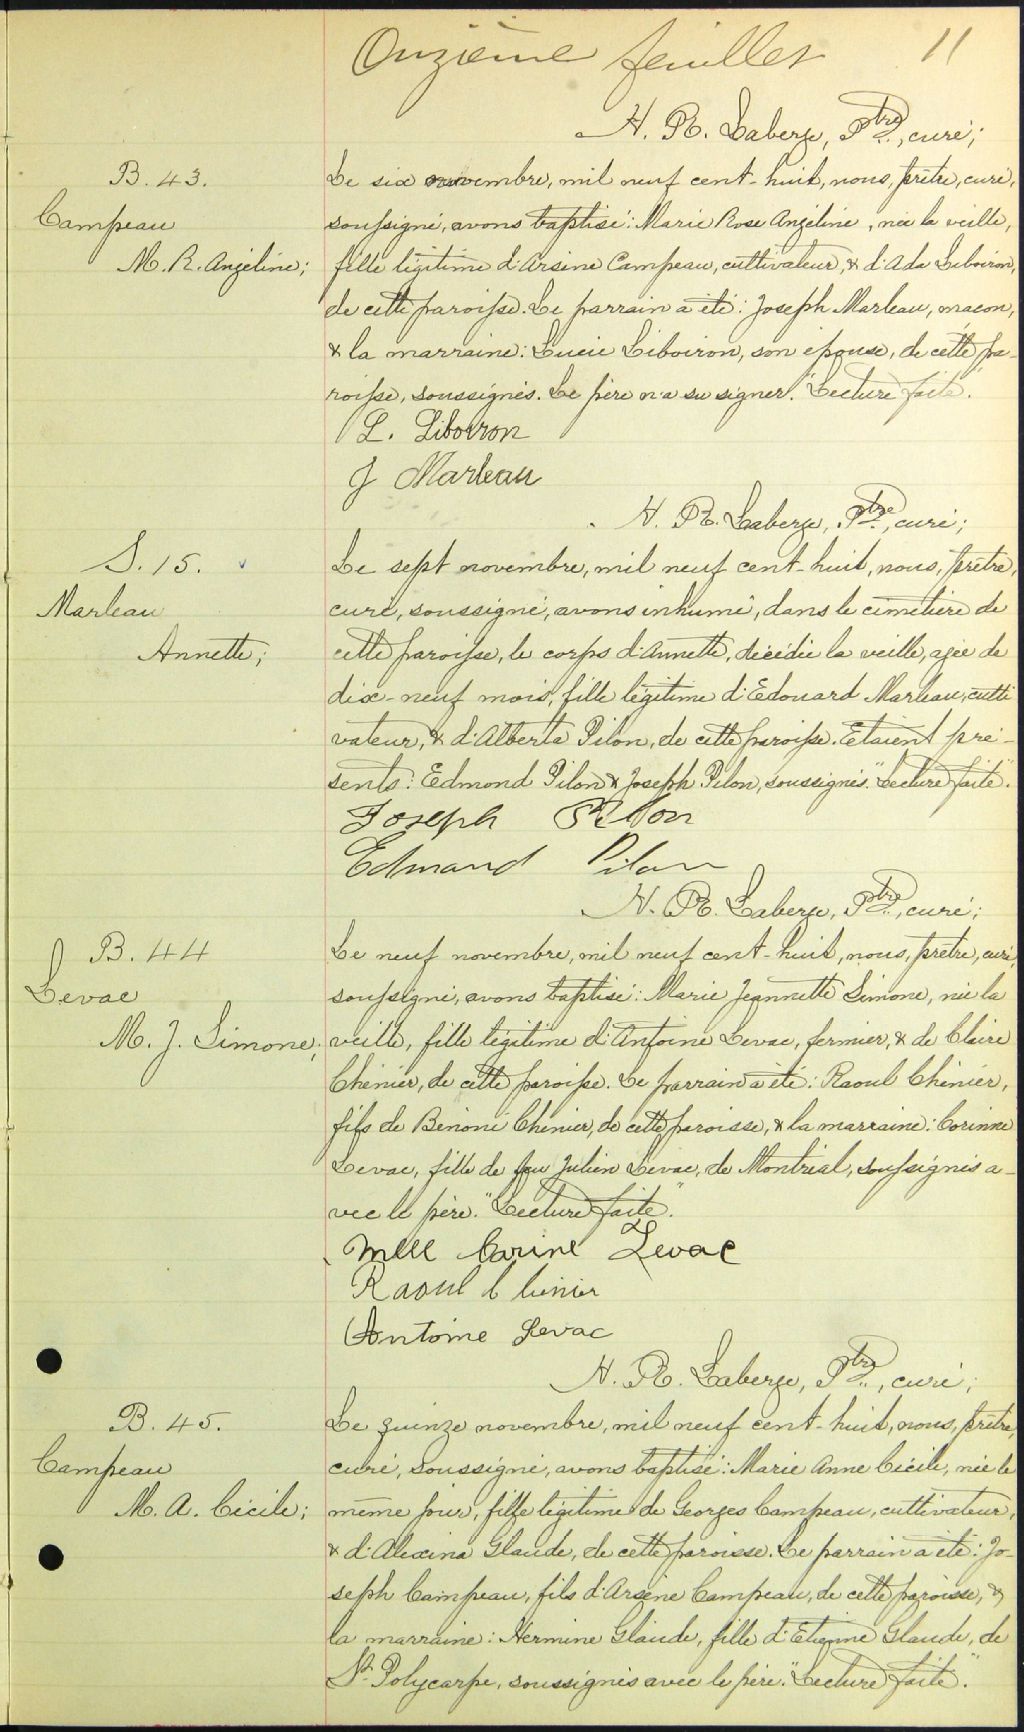 Onzième feuillet 11
H. R. Laberge, Ptre, curé;
B. 43.
Campeau
M. R. Angéline;
Le six novembre, mil neuf cent-huit, nous, prêtre, curé,
soussigné, avons baptisé: Marie Rose Angéline, née la veille,
fille légitime d'Arsène Campeau, cultivateur, & d'Ada Liboiron,
de cette paroisse. Le parrain a été: Joseph Marleau, maçon,
& la marraine: Lucie Liboiron, son épouse, de cette pa-
roisse, soussignés. Le père n'a su signer. "Lecture faite".
L. Liboiron
J Marleau
H. R. Laberge, Ptre, curé;
S. 15.
Marleau
Annette;
Le sept novembre, mil neuf cent-huit, nous, prêtre,
curé, soussigné, avons inhumé, dans le cimetière de
cette paroisse, le corps d'Annette, décédée la veille, agée de
dix-neuf mois, fille légitime d'Edouard Marleau, culti
vateur, & d'Alberta Pilon, de cette paroisse. Etaient pré-
sents: Edmond Pilon & Joseph Pilon, soussignés. "Lecture faite".
Joseph Pilon
Edmond Pilon
H. R. Laberge, Ptre, curé;
B. 44
Levac
M. J. Simone;
Le neuf novembre, mil neuf cent-huit, nous, prêtre, curé,
soussigné, avons baptisé: Marie Jeannette Simone, née la
veille, fille légitime d'Antoine Levac, fermier, & de Claire
Chénier, de cette paroisse. Le parrain a été: Raoul Chénier,
fils de Bénoni Chénier, de cette paroisse, & la marraine: Corinne
Levac, fille de feu Julien Levac, de Montréal, soussignés a-
vec le père. "Lecture faite."
Mlle Corine Levac
Raoul Chenier
Antoine Levac
H. R. Laberge, Ptre, curé;
B. 45.
Campeau
M. A. Cécile;
Le quinze novembre, mil neuf cent-huit, nous, prêtre,
curé, soussigné, avons baptisé: Marie Anne Cécile, née le
même jour, fille légitime de Georges Campeau, cultivateur,
& d'Alexina Glaude, de cette paroisse. Le parrain a été: Jo-
seph Campeau, fils d'Arsène Campeau, de cette paroisse, &
la marraine: Hermine Glaude, fille d'Etienne Glaude, de
St. Polycarpe, soussignés avec le père. "Lecture faite."